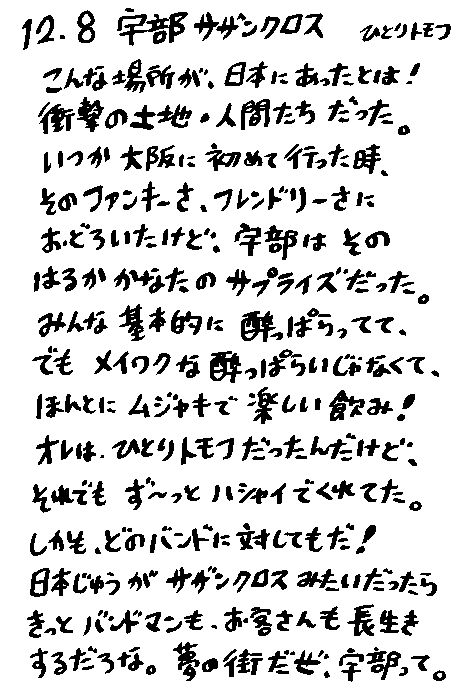 12.8 宇部サザンクロス ひとりトモフ
こんな場所が、日本にあったとは!
衝撃の土地・人間たちだった。
いつか大阪に初めて行った時、
そのファンキーさ、フレンドリーさに
おどろいたけど、宇部はその
はるかかなたのサプライズだった。
みんな基本的に酔っぱらってて、
でもメイワクな酔っぱらいじゃなくて、
ほんとにムジャキで楽しい飲み!
オレは、ひとりトモフだったんだけど、
それでもず〜っとハシャイでくれてた。
しかも、どのバンドに対してもだ!
日本じゅうがサザンクロスみたいだったら
きっとバンドマンも、お客さんも長生き
するだろな。夢の街だぜ、宇部って。